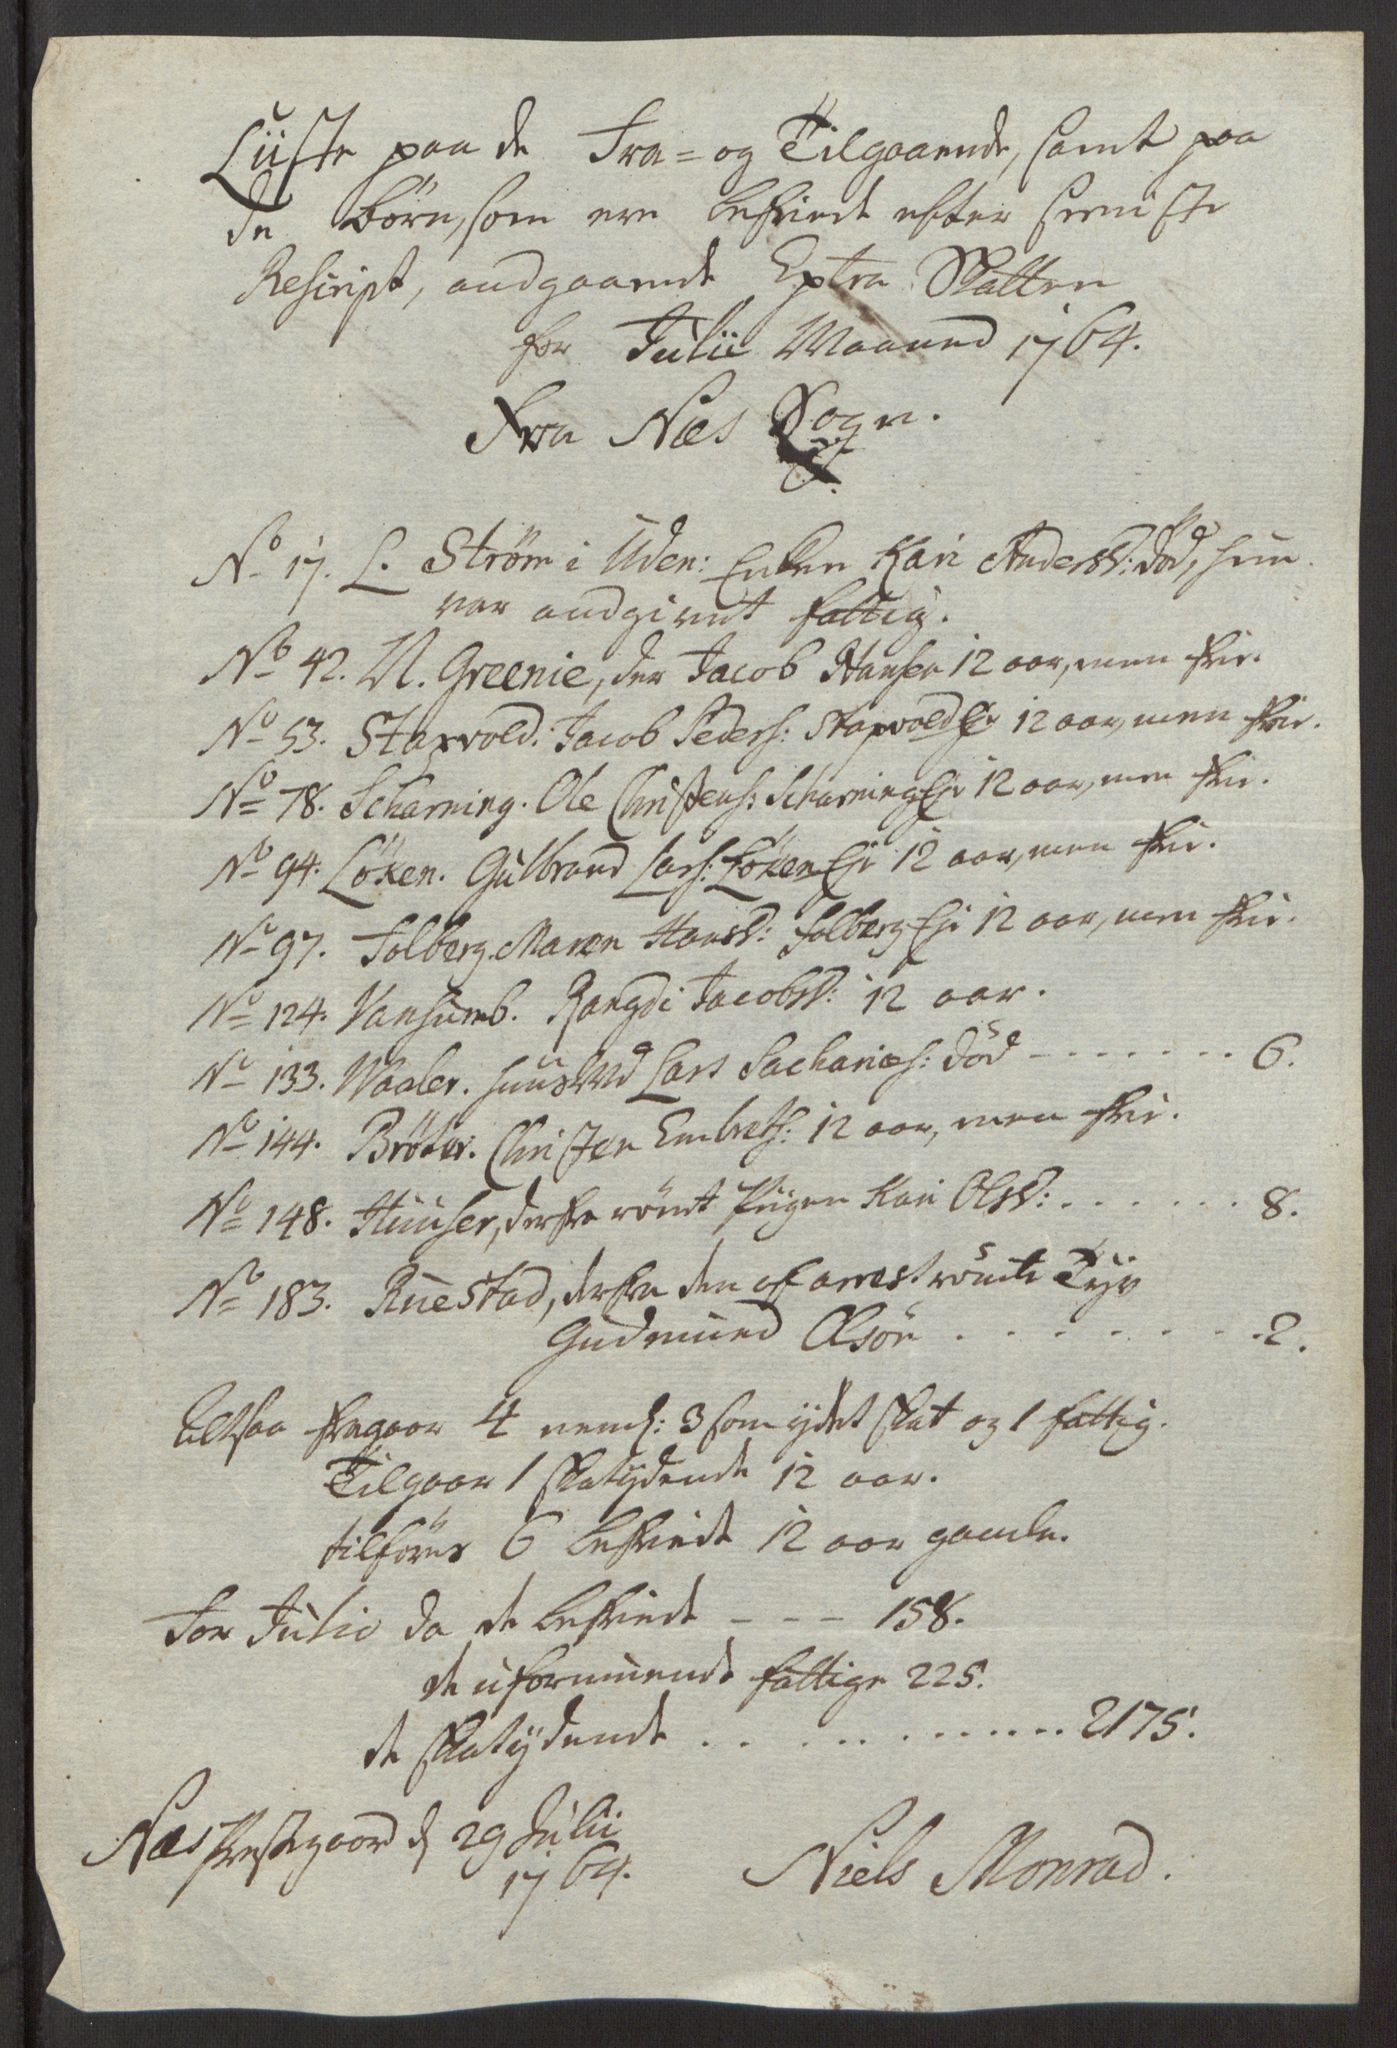 Liiste paa de Fra= og Tilgaaende, samt paa
de Börn, som ere befriede efter seeniste
Rescript, andgaaende Extra Skatten
for Julii Maaned 1764.
Fra Næs Sogn.
No 17. L. Ström i Uden: Enken Kari Andersd: död, hun
var andgivet fattig.
No 42. N. Greenie, der Jacob Hansen 12 aar, men frie.
No 53. Staxvold. Jacob Peders: Staxvold Eje 12 aar, men frie.
No 78. Scharning. Ole Christens: Scharning Eje 12 aar, men frie.
No 94. Löken. Gulbrand Lars: Löken Eje 12 aar, men frie.
No 97. Solberg. Maren Hansd: Solberg Eje 12 aar, men frie.
No 124. Vansumb. Rangdi Jacobsd: 12 aar.
No 133. Waaler. huusmd Lars Sacharias: död - - - - - - - 6.
No 144. Bröter. Christen Embrets: 12 aar, men frie.
No 148. Huuser, derfra römt Pigen Kari Olsd: . . . . . . . 8.
No 183. Ruestad, derfra den af arrest römte Tyv
Gudmund Olsön . . . . . . . . 2.
Altsaa fragaar 4 neml: 3 som ydet skat og 1 fattig.
Tilgaar 1 skatydende 12 aar.
tilföres 6 befriede 12 aar gamle.
For Julio da de befriede - - - 158.
de uformuende fattige 225.
de skatydende . . . . . . . . . . . 2175.
Næs Præstegaard d 29 Julii
1764.
Niels Monrad.